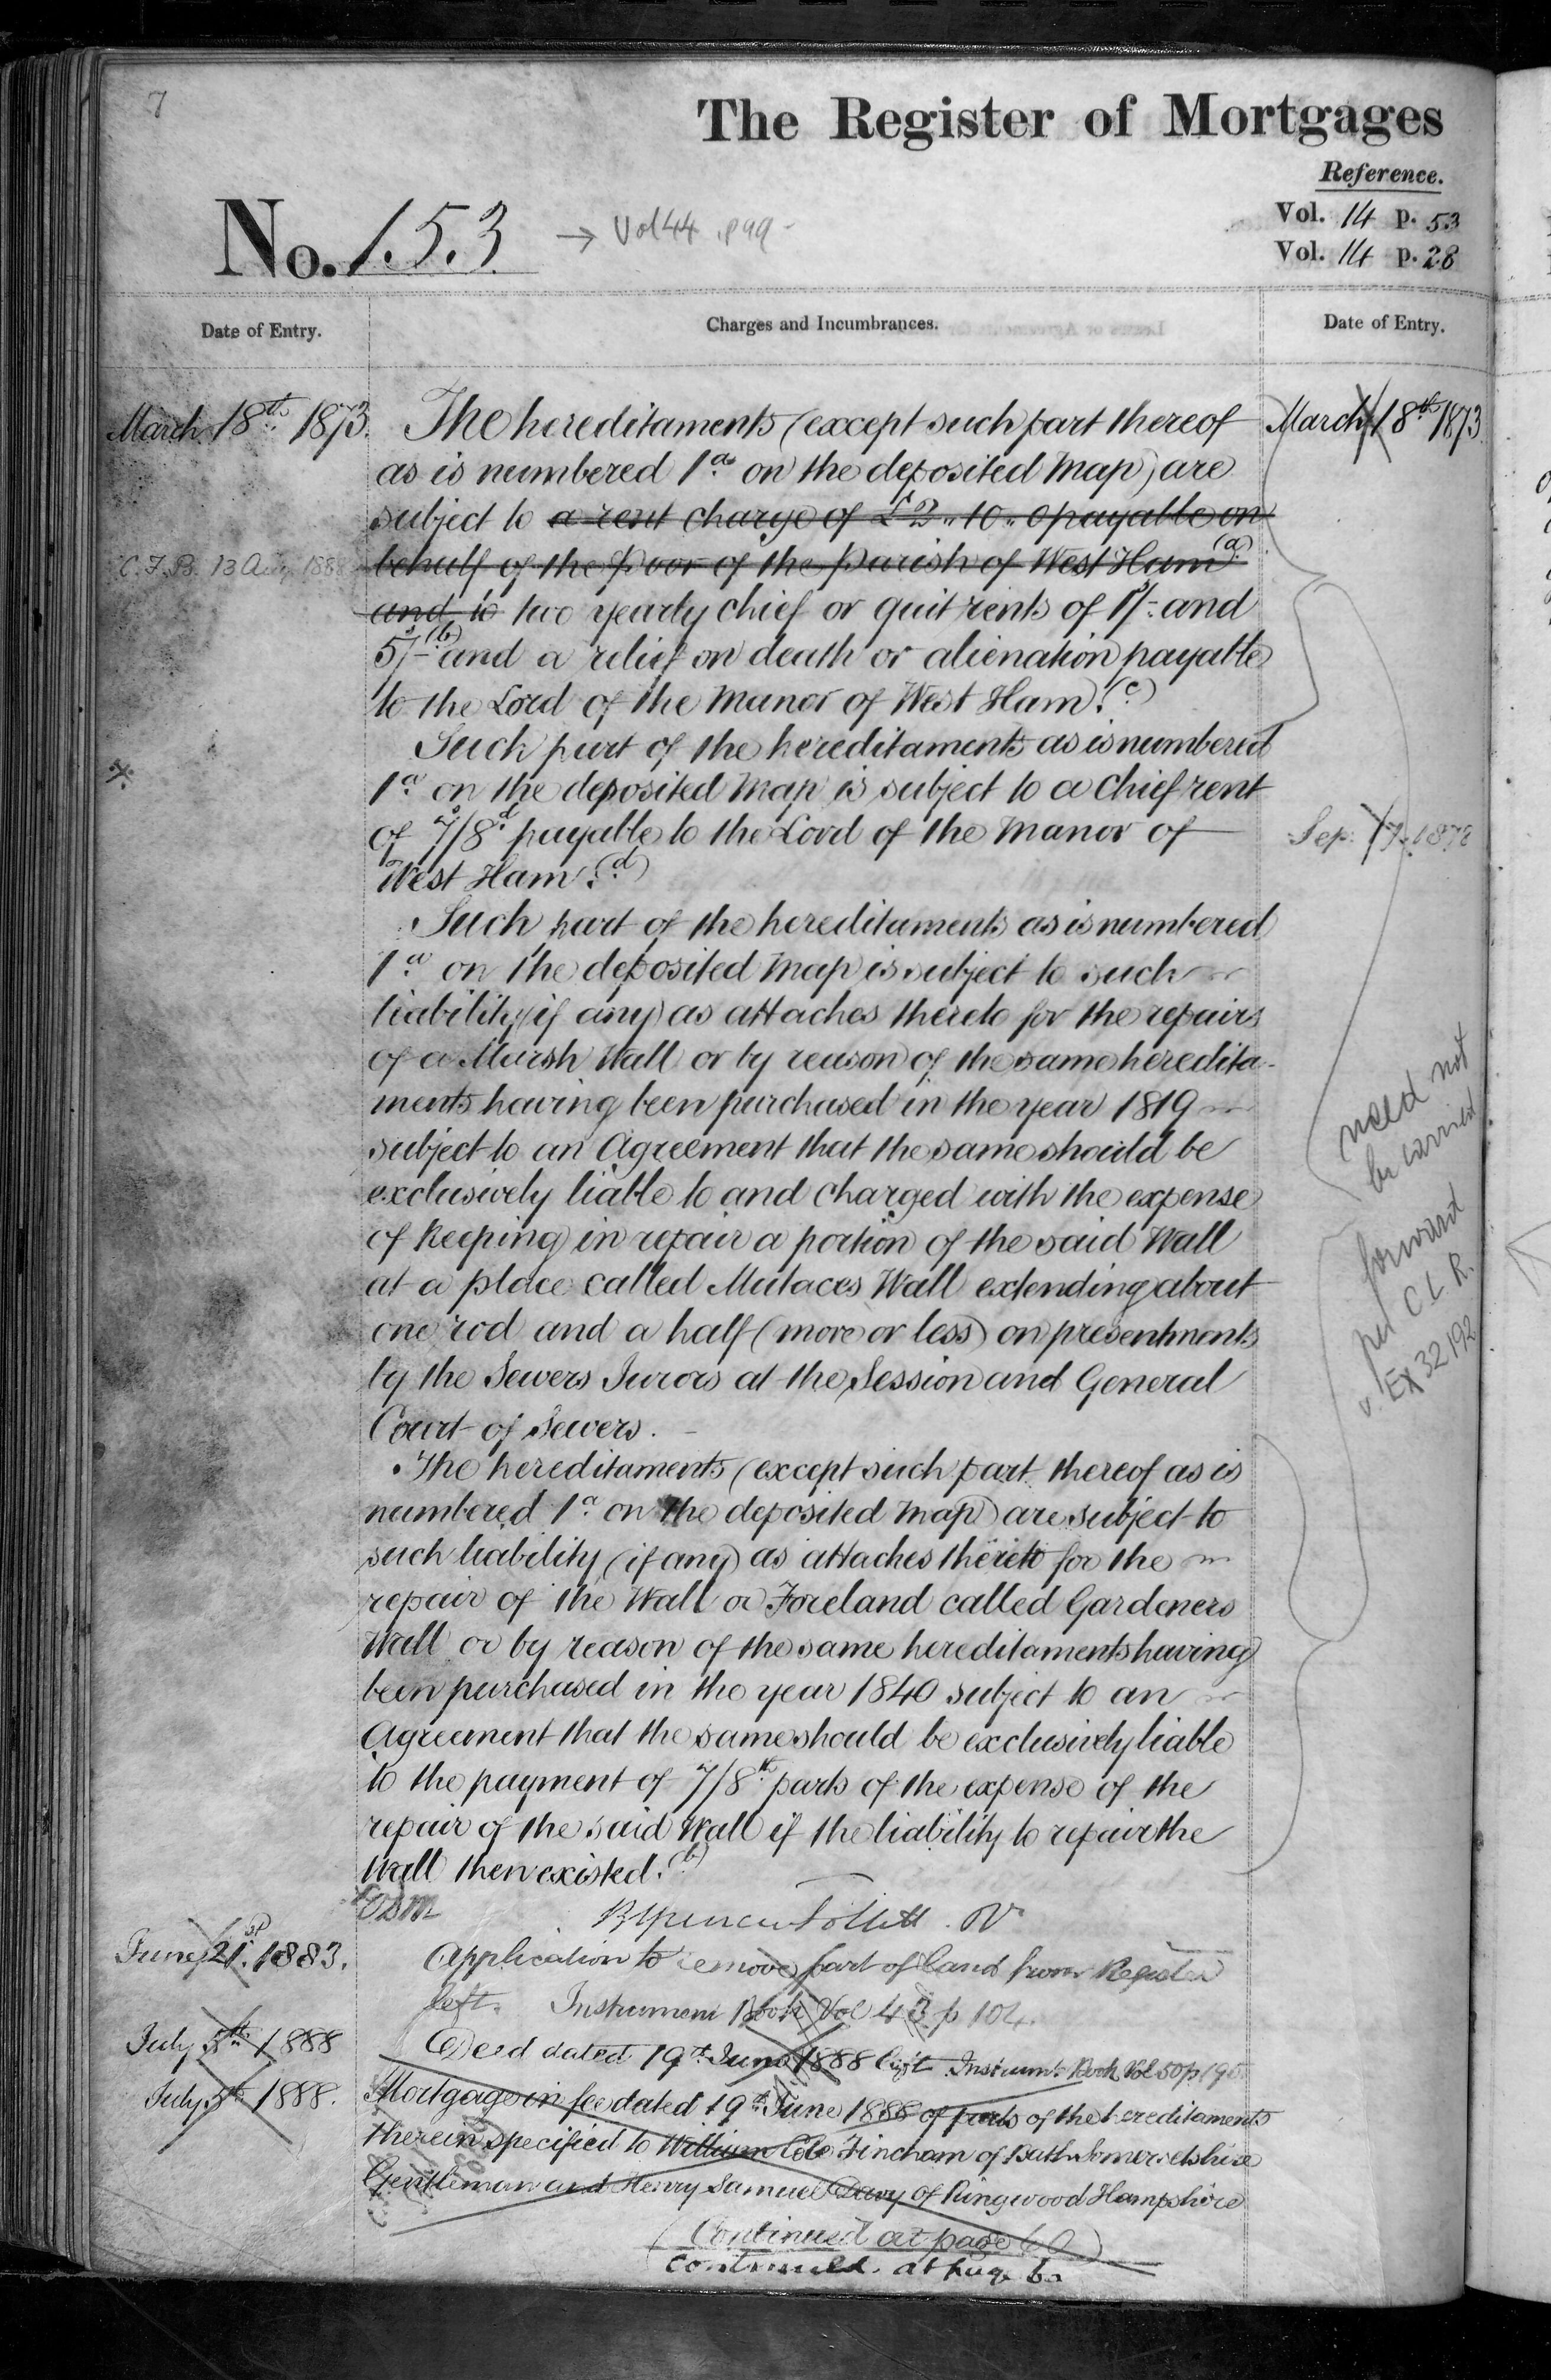 7
The Register of Mortgages
Reference.
No. 153 → Vol 44 p 99
Vol. 14 p. 53
Vol. 14 p. 28
Date of Entry.
Charges and Incumbrances.
Date of Entry.
March 18th 1873.
The hereditaments (except such part thereof
March 18th 1873
as is numbered 1a on the deposited Map) are
subject to a rent charge of £2..10..0 payable on
C.F.B. 13 Aug 1888
behalf of the Poor of the Parish of West Ham (a)
and to two yearly chief or quit rents of 1s/- and
5s/- (b) and a relief on death or alienation payable
to the Lord of the Manor of West Ham. (c)
Such part of the hereditaments as is numbered
1a on the deposited Map is subject to a Chief rent
of 7s/8d payable to the Lord of the Manor of
Sep. 17. 1872
West Ham. (d)
Such part of the hereditaments as is numbered
1a on the deposited Map is subject to such
liability (if any) as attaches thereto for the repairs
of a Marsh Wall or by reason of the same heredita-
ments having been purchased in the year 1819
subject to an Agreement that the same should be
exclusively liable to and charged with the expense
of keeping in repair a portion of the said Wall
at a place called Mulaces Wall extending about
one rod and a half (more or less) on presentments
by the Sewers Jurors at the Session and General
Court of Sewers.
need not
be carried
forward
per C.L.R.
v. Ex 32192
The hereditaments (except such part thereof as is
numbered 1a on the deposited Map) are subject to
such liability (if any) as attaches thereto for the
repair of the Wall or Foreland called Gardeners
Wall or by reason of the same hereditaments having
been purchased in the year 1840 subject to an
Agreement that the same should be exclusively liable
to the payment of 7/8th parts of the expense of the
repair of the said Wall if the liability to repair the
Wall then existed. (b)
Follett
June 21st 1883.
Application to remove part of land from Register
left. Instrument Book Vol 43 p 104.
July 5th 1888
Deed dated 19th June 1888 left Instrumt Book Vol 50 p 195
July 5th 1888.
Mortgage in fee dated 19th June 1888 of parts of the hereditaments
therein specified to William Cole Fincham of Bath Somersetshire
Gentleman and Henry Samuel Davy of Ringwood Hampshire
(Continued at page 60)
continued at page 60